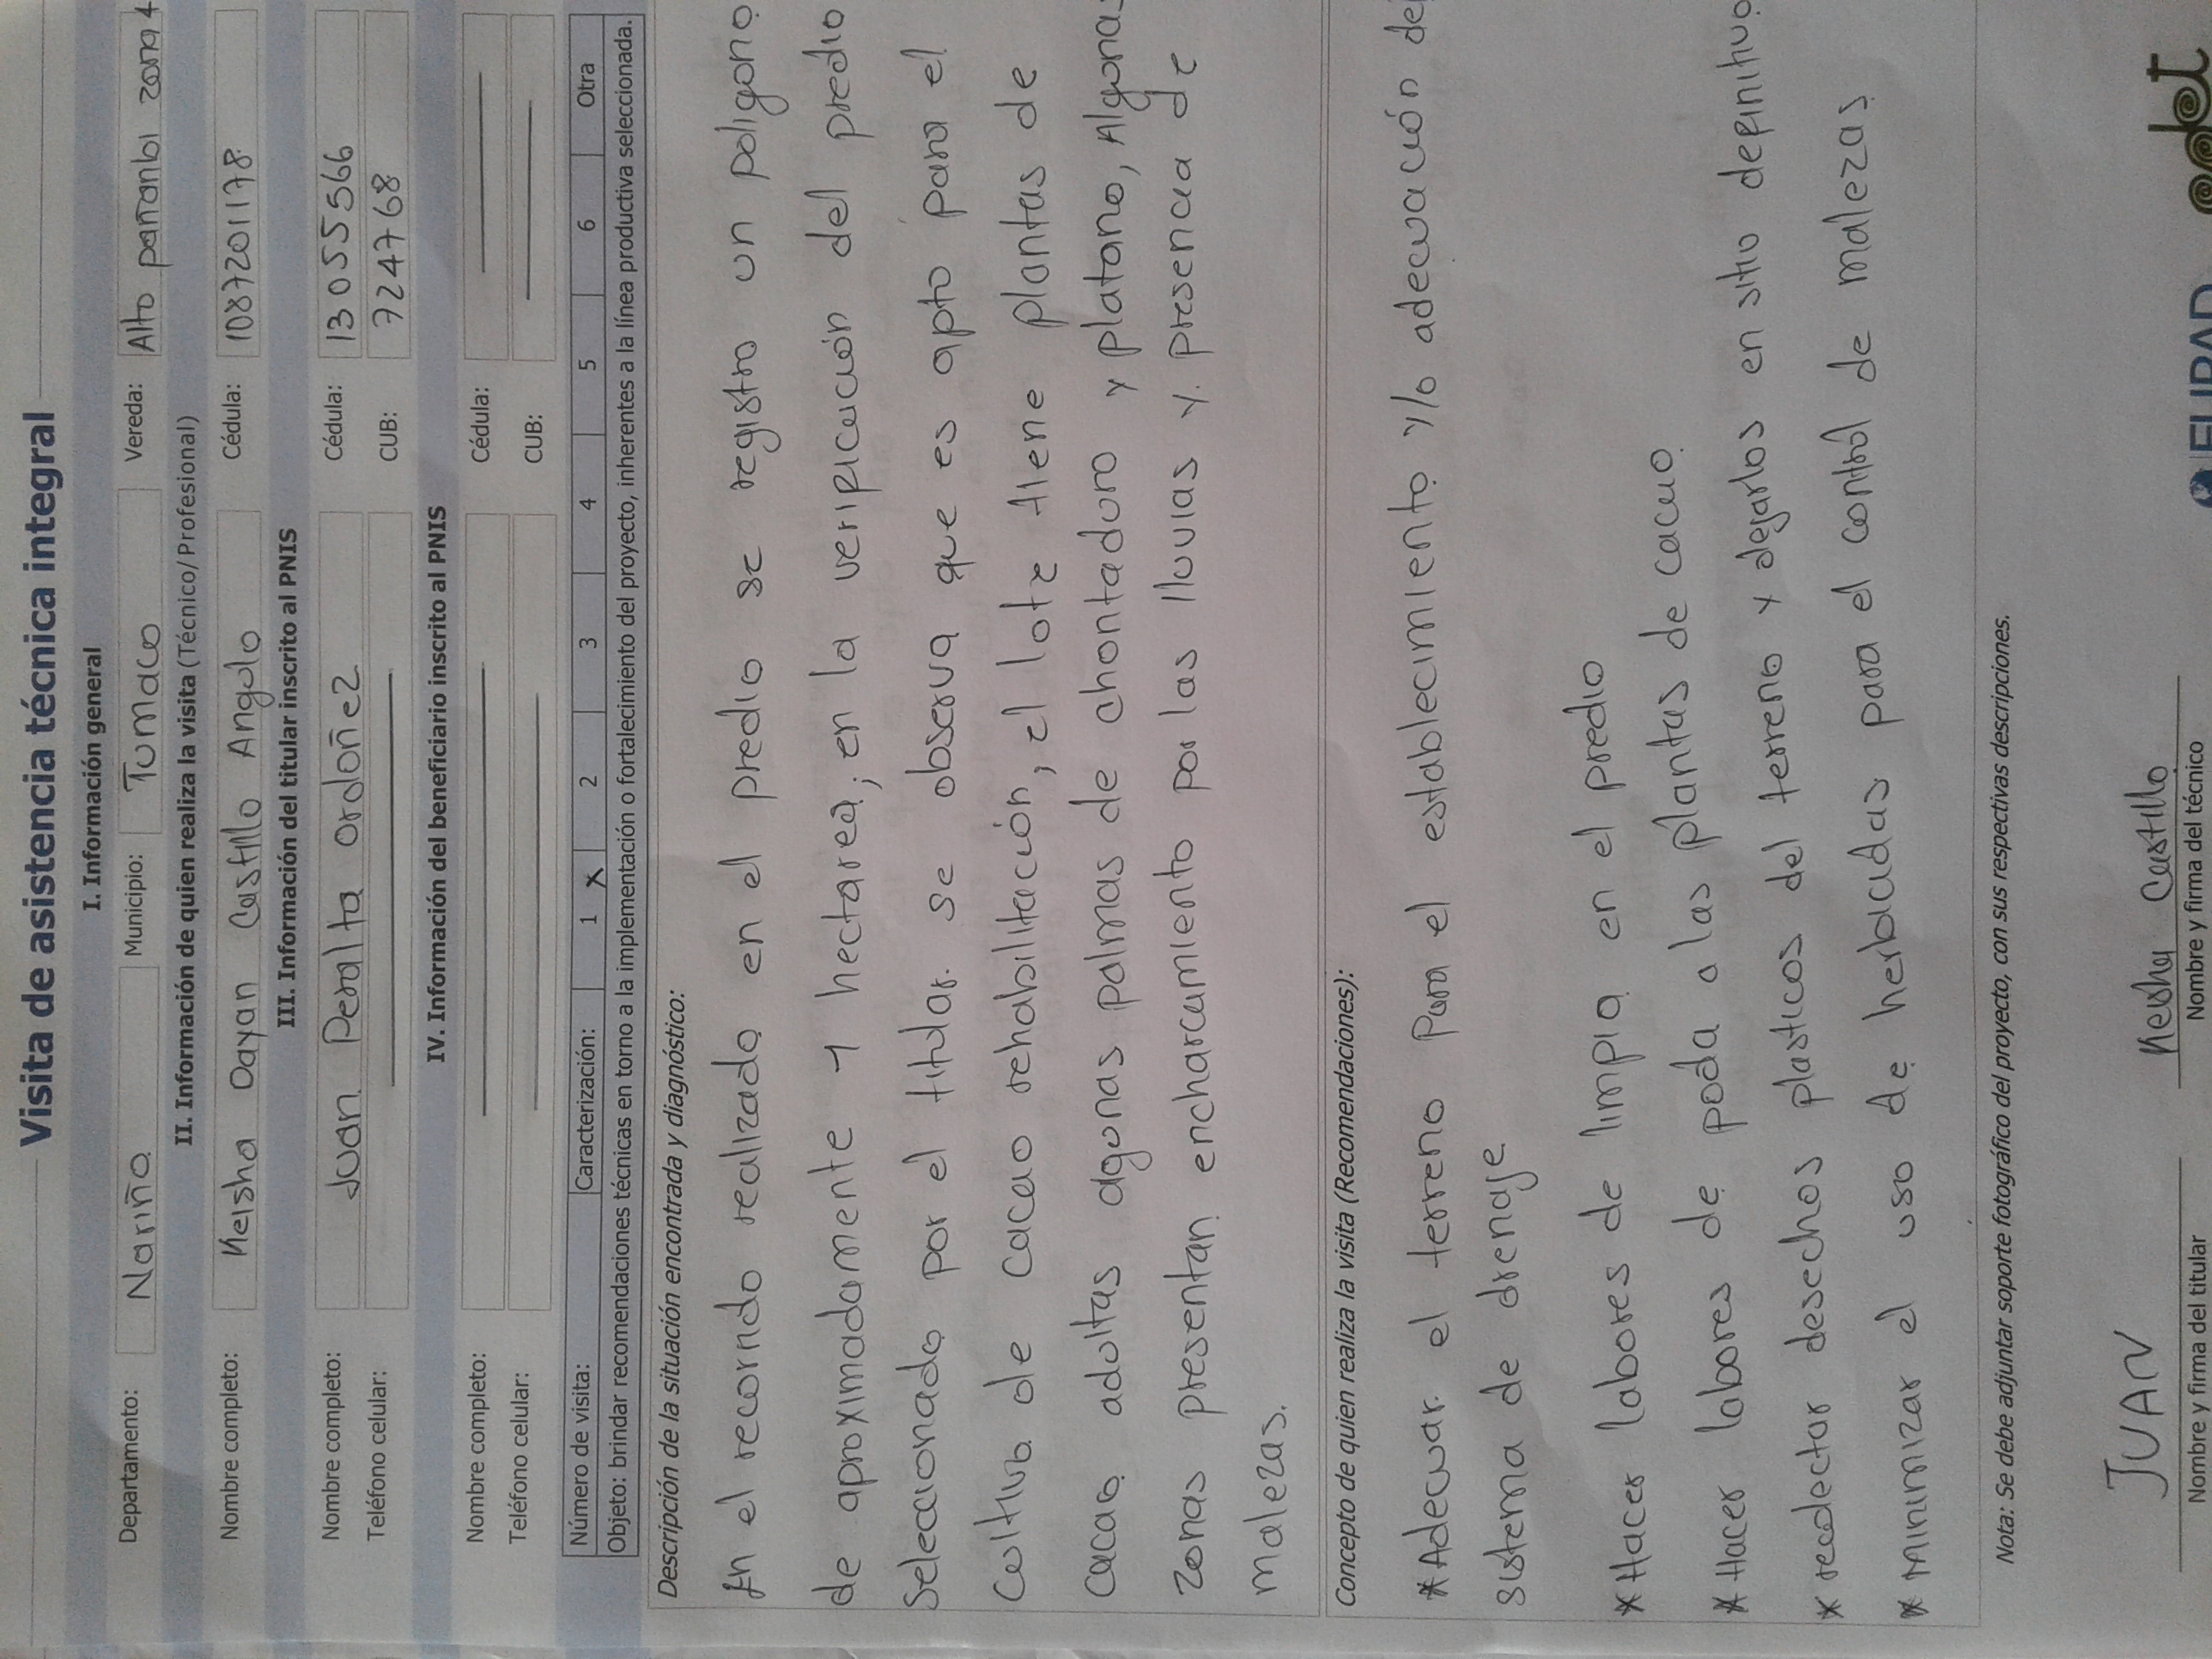 Visita de asistencia técnica integral
I. Información general
Departamento: Nariño Municipio: Tumaco Vereda: Alto panambi zona 4
II. Información de quien realiza la visita (Técnico/ Profesional)
Nombre completo: Keisha Dayan Castillo Angulo Cédula: 1087201178
III. Información del titular inscrito al PNIS
Nombre completo: Juan Peralta ordoñez Cédula: 13055566
Teléfono celular: CUB: 724768
IV. Información del beneficiario inscrito al PNIS
Nombre completo: Cédula:
Teléfono celular: CUB:
Número de visita: Caracterización: 1 X 2 3 4 5 6 Otra
Objeto: brindar recomendaciones técnicas en torno a la implementación o fortalecimiento del proyecto, inherentes a la línea productiva seleccionada.
Descripción de la situación encontrada y diagnóstico:
En el recorrido realizado en el predio se registro un poligono
de aproximadamente 1 hectarea; en la verificación del predio
Seleccionado por el titular. se observa que es apto para el
Cultivo de cacao rehabilitación, el lote tiene plantas de
cacao adultas algunas palmas de chontaduro y platano, Algunas
zonas presentan encharcamiento por las lluvias y presencia de
malezas.
Concepto de quien realiza la visita (Recomendaciones):
*Adecuar el terreno para el establecimiento y/o adecuación del
sistema de drenaje
*Hacer labores de limpia en el predio
*Hacer labores de poda a las plantas de cacao
* recolectar desechos plasticos del terreno y dejarlos en sitio definitivo
* Minimizar el uso de herbicidas para el control de malezas
Nota: Se debe adjuntar soporte fotográfico del proyecto, con sus respectivas descripciones.
JUAN Keisha Castillo
Nombre y firma del titular Nombre y firma del técnico